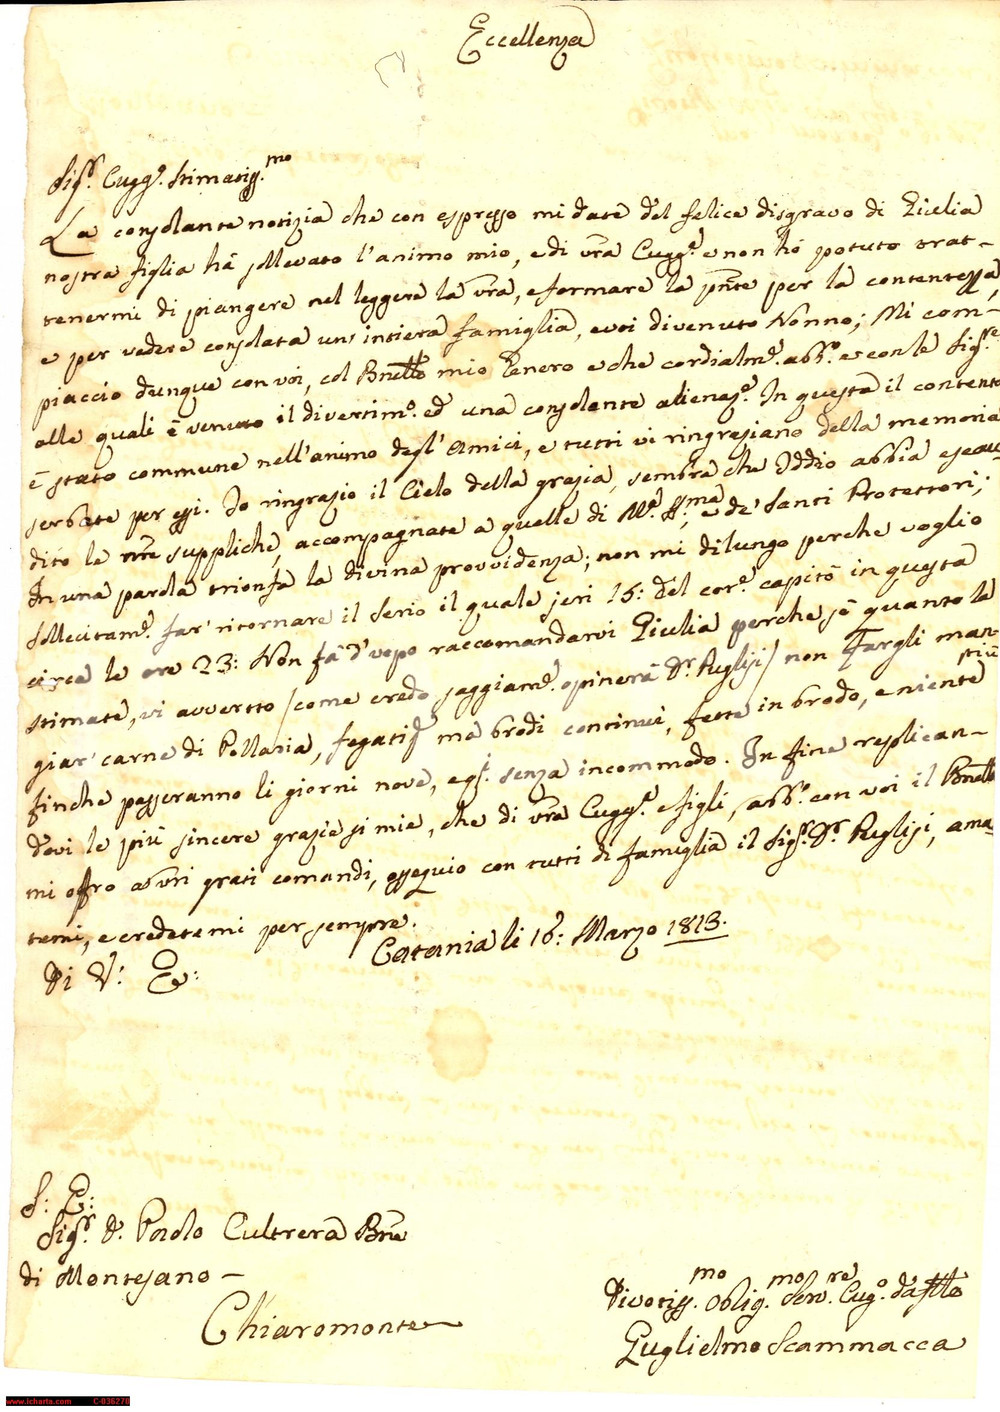 Eccellenza
Sig.r Cugg.o Stimatiss.mo
La consolante notizia che con espresso mi date del felice disgravo di Giulia
nostra figlia hà sollevato l'animo mio, e di vra Cugg.a e non hò potuto trat-
tenermi di piangere nel leggere la vra, e formare la pnte per la contentezza,
e per vedere consolata un' intiera famiglia, e voi divenuto Nonno; Mi com-
piaccio dunque con voi, col Bnello mio Genero e che cordialm.e abb.o e con le Sig.re
alle quali è venuto il divertim.o ed una consolante alienaz.e In questa il contento
è stato commune nell'animo degl' Amici, e tutti vi ringraziano della memoria
serbate per essi. Io ringrazio il Cielo della grazia, sembra che Iddio abbia esau-
dito le nre suppliche, accompagnate a quelle di M.a SS.ma, e de' Santi Protettori;
In una parola trionfa la divina provvidenza; non mi dilungo perche voglio
sollecitam.e far' ritornare il Serio il quale jeri 15: del cor.e capitò in questa
circa le ore 23: Non fà d'vopo raccomandarvi Giulia perche sò quanto la
stimate, vi avverto /come credo saggiam.e opinerà D.r Puglisi/ non Fargli man-
giar' carne di Pollaria, fegati, ma brodi continui, fette in brodo, e niente più
finche passeranno li giorni nove, e senza incommodo. In fine replican-
dovi le più sincere grazie si mie, che di vra Cugg.a e figli, abb.o con voi il Bnello
mi offro a vri grati comandi, ossequio con tutti di famiglia il Sig.r D.r Puglisi, ama-
temi, e credetemi per sempre.
Catania li 16: Marzo 1813.
Di V: E:
S: E:
Sig.r D. Paolo Cultrera Bne
di Montesano –
Chiaromonte
Divotiss.mo oblig.mo Serv.re Cug.o d'affto
Guglielmo Scammacca
www.icharta.com C-036270